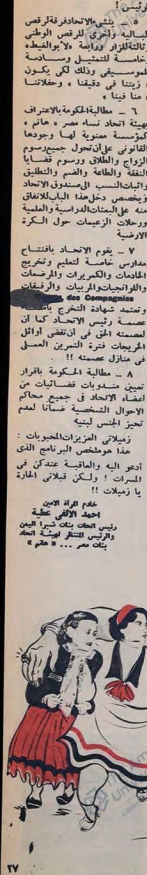 الرئيس !
٥ – ينشىء الاتحاد فرقة لرقص
الباليه وأخرى للرقص الوطنى
وثالثة للزار ورابعة «لابو الغيط»
وخامسة للتمثيل وسادسة
للموسيقى وذلك لكى يكون
« زيتنا فى دقيقنا » وحفلاتنا
« منا فينا »
٦ – مطالبة الحكومة بالاعتراف
بهيئة اتحاد نساء مصر « هانم »
كمؤسسة معنوية لها وجودها
القانونى على أن تحول جميع رسوم
الزواج والطلاق ورسوم قضايا
النفقة والطاعة والضم والتطليق
واثبات النسب الى صندوق الاتحاد
ويخصص دخل هذا الباب للانفاق
منه على البعثات الدراسية والعلمية
ورحلات الزعيمات حول الكرة
الارضية
٧ – يقوم الاتحاد بافتتاح
مدارس خاصة لتعليم وتخريج
الخادمات والكمريرات والمرضعات
واللوانجيات والمربيات والرفيقات
des Compagnies
وتعتمد شهادة التخرج بامضاء
عصمة رئيس الاتحاد كما أن
لعصمته الحق فى أن تقضى أوائل
الخريجات فترة التمرين العملى
فى منازل عصمته !!
٨ – مطالبة الحكومة باقرار
تعيين مندوبات قضائيات من
أعضاء الاتحاد فى جميع محاكم
الاحوال الشخصية ضمانا لعدم
تحيز الجنس لبنيه
زميلاتى العزيزات المحبوبات :
هذا هو ملخص البرنامج الذى
أدعو اليه والعاقبة عندكن فى
المسرات ! ولكن قبلاتى الحارة
يا زميلات !!
خادم المرأة الامين
احمد الالفى عطية
رئيس اتحاد بنات شبرا اليمن
والرئيس المنتظر لهيئة اتحاد
بنات مصر ... « هانم »
٢٧